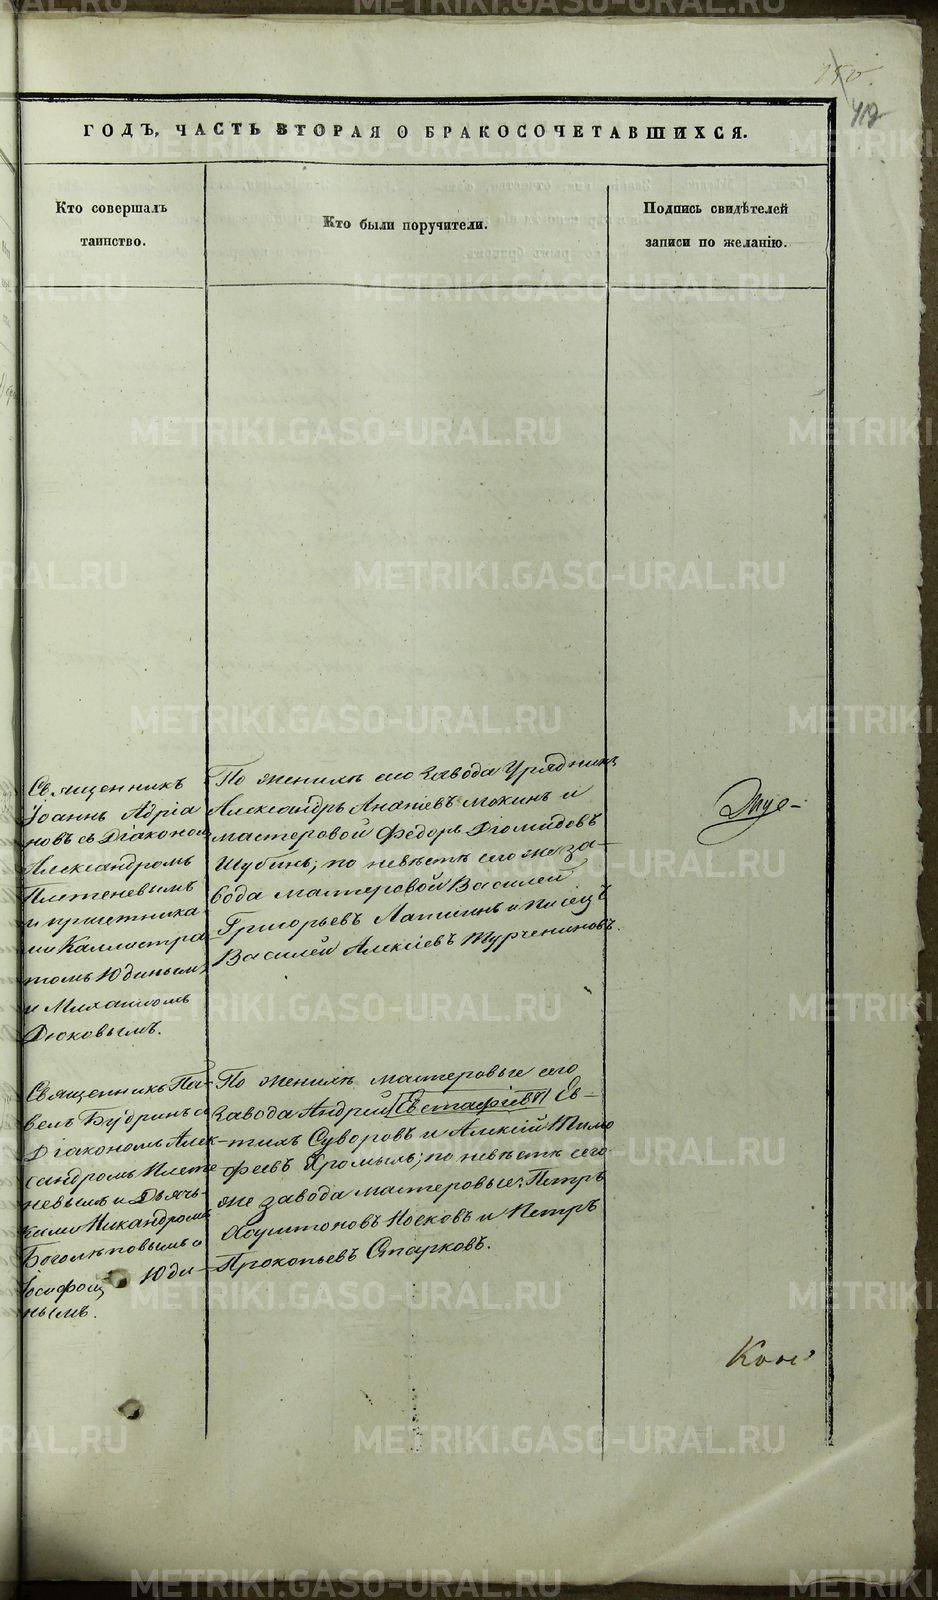 ГОДЪ, ЧАСТЬ ВТОРАЯ О БРАКОСОЧЕТАВШИХСЯ.
Кто совершалъ
таинство.
Кто были поручители.
Подпись свидѣтелей
записи по желанію.
Священникъ
Іоаннъ Адріа
новъ съ Діакономъ
Александромъ
Плетеневымъ
и причетника
ми Каллистра
томъ Юдинымъ
и Михаиломъ
Дюковымъ.
По женихѣ сего завода Урядникъ
Александръ Ананіевъ Мокинъ и
мастеровой Ѳедоръ Діомидовъ
Шубинъ; по невѣстѣ сего же за-
вода мастеровой Василей
Григорьевъ Лапшинъ и писецъ
Василей Алексіевъ Турчениновъ.
Священникъ Па-
велъ Будринъ съ
Діакономъ Алек-
сандромъ Плете
невымъ и Дьячь-
ками Никандромъ
Боголѣповымъ и
Іосифомъ Юди-
нымъ.
По женихѣ мастеровые сего
завода Андрей (Евстафіевъ) Ев-
тихъ Суворовъ и Алексій Тимо
феевъ Хромыхъ; по невѣстѣ сего
же завода мастеровые: Петръ
Носковъ и Петръ
Прокопьевъ Старковъ.
METRIKI.GASO-URAL.RU